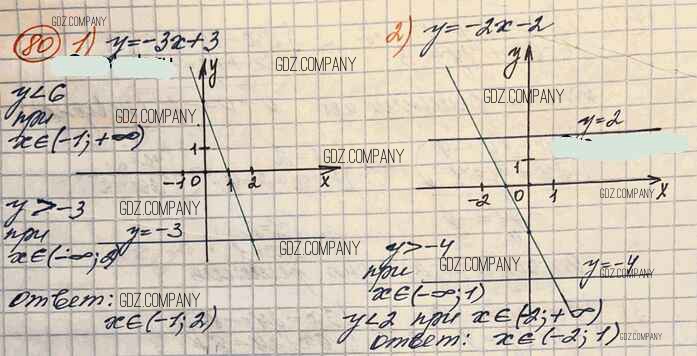 GDZ.COMPANY
80 1) y=-3x+3
GDZ.COMPANY
y<6
при
x∈(-1;+∞)
GDZ.COMPANY
y
1
-1 0 1 2 x
GDZ.COMPANY
y>-3
GDZ.COMPANY
при
y=-3
x∈(-∞;
GDZ.COMPANY
ответ:
GDZ.COMPANY
x∈(-1;2)
2) y=-2x-2
y
GDZ.COMPANY
y=2
1
-2 0 1 x
GDZ.COMPANY
y>-4
GDZ.COMPANY
y=-4
GDZ.COMPANY
при
x∈(-∞;1)
y<2 при x∈(-2;+∞)
ответ: x∈(-2;1)
GDZ.COMPANY